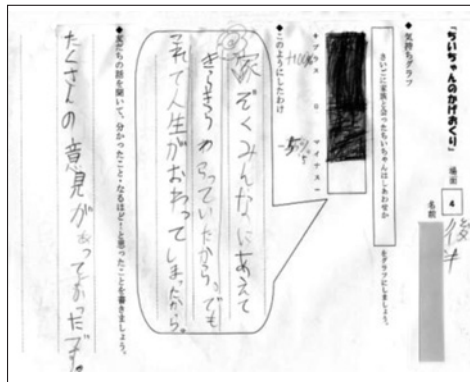 「ちいちゃんのかげおくり」 場面 4
名前
◆気持ちグラフ
さいごに家族と会ったちいちゃんはしあわせか
をグラフにしましょう。
+プラス 0 マイナス-
+100%
◆このようにしたわけ
家ぞくみんなにあえて
きらきらわらっていたから。でも
それで人生がおわってしまったから。
◆友だちの話を聞いて、分かったこと・なるほど!と思ったことを書きましょう。
たくさんの意見があってよかったです。